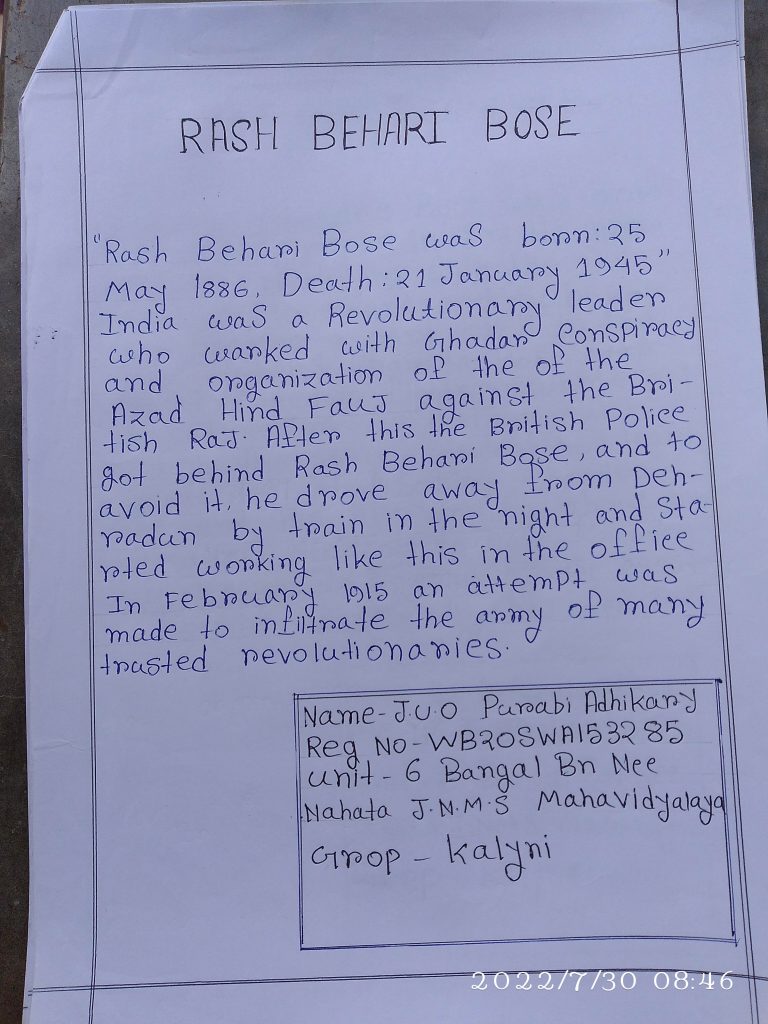 RASH BEHARI BOSE
"Rash Behari Bose was born: 25
May 1886, Death: 21 January 1945"
India was a Revolutionary leader
who warked with Ghadar Conspiracy
and organization of the of the
Azad Hind Fauj against the Bri-
tish Raj. After this the British Police
got behind Rash Behari Bose, and to
avoid it, he drove away from Deh-
radun by train in the night and Sta-
rted working like this in the office
In February 1915 an attempt was
made to infiltrate the army of many
trusted revolutionaries.
Name- J.U.O Purabi Adhikary
Reg No- WB20SWA153285
Unit - 6 Bangal Bn Nee
Nahata J.N.M.S Mahavidyalaya
Grop - Kalyni
2022/7/30 08:46